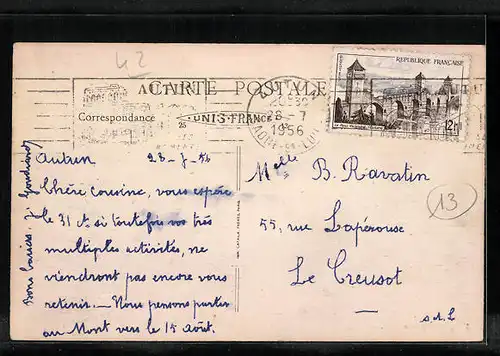 42
CARTE POSTALE
Correspondance
UNIS-FRANCE
AUTUN
20H30
28-7
1956
SAONE-ET-LOIRE
REPUBLIQUE FRANÇAISE
12F
Autun 28-7-56
Chère cousine, vous espère
le 31 A si toutefois vos très
multiples activités, ne
viendront pas encore vous
retenir. — Nous pensons partir
au Mont vers le 15 Août.
Bons baisers.
Melle B. Ravatin
55, rue Lapérouse
Le Creusot
S.&L
13